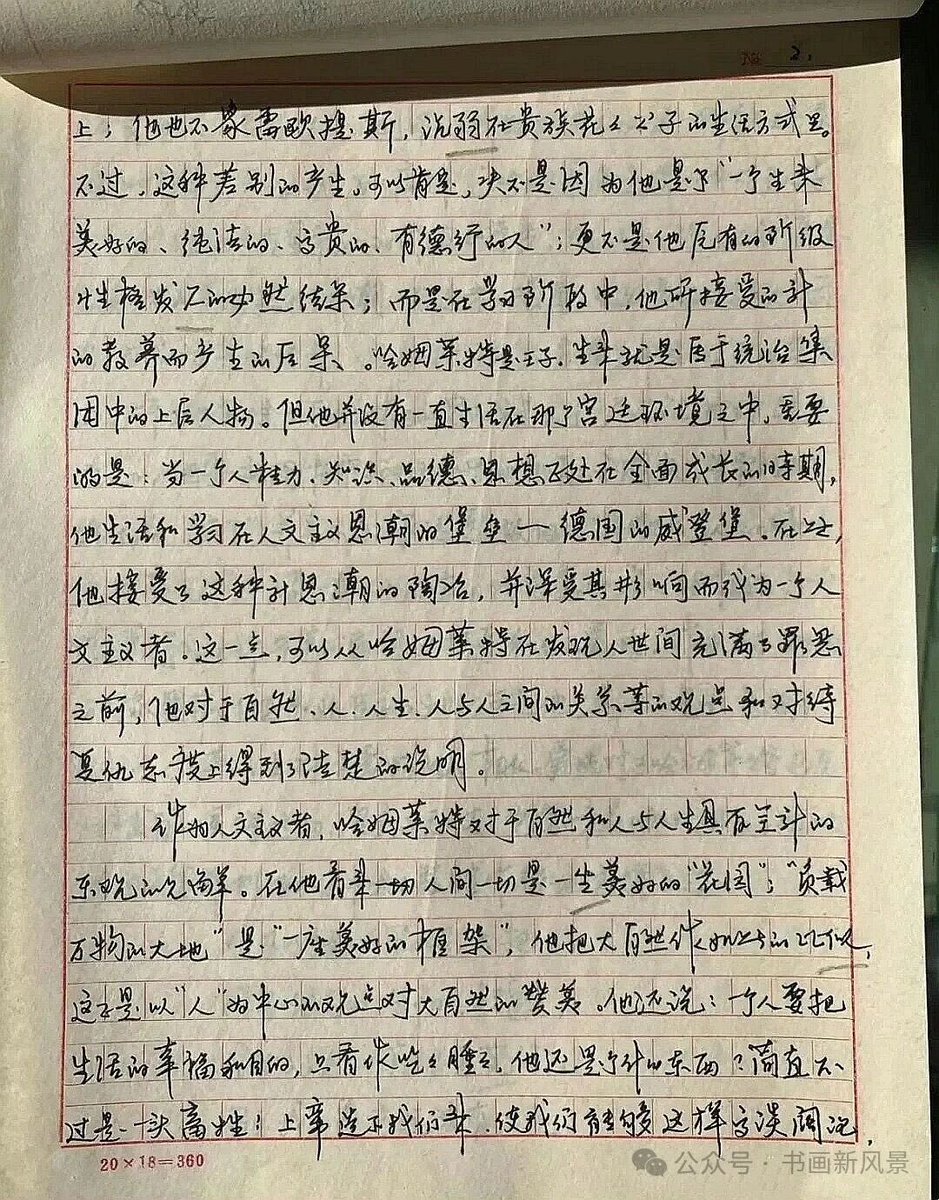 № 2.
上；他也不象雷欧提斯，沉溺在贵族花花公子的生活方式里。
不过，这种差别的产生，可以肯定，决不是因为他是了“一个生来
美好的、纯洁的、高贵的、有德行的人”；更不是他原有的阶级
性格发展的必然结果；而是在学习阶段中，他所接受的新
的教养而产生的后果。哈姆莱特是王子，生来就是属于统治集
团中的上层人物。但他并没有一直生活在那个宫廷环境之中，重要
的是：当一个人精力、知识、品德、思想正处在全面成长的时期，
他生活和学习在人文主义思潮的堡垒—德国的威登堡。在这里，
他接受了这种新思潮的陶冶，并深受其影响而成为一个人
文主义者。这一点，可以从哈姆莱特在发现人世间充满了罪恶
之前，他对于自然、人、人生、人与人之间的关系等的观点和对待
复仇态度上得到清楚的说明。
作为人文主义者，哈姆莱特对于自然和人与人生具有全新的
乐观的见解。在他看来一切人间一切是一座美好的“花园”；“负载
万物的大地”是“一座美好的框架”，他把大自然作如此的比似，
这正是以“人”为中心的观点对大自然的赞美。他还说：一个人要把
生活的幸福和目的，只看作吃吃睡睡，他还是个什么东西？简直不
过是一头畜牲！上帝造下我们来，使我们能够这样高谈阔论，
20×18=360
公众号·书画新风景